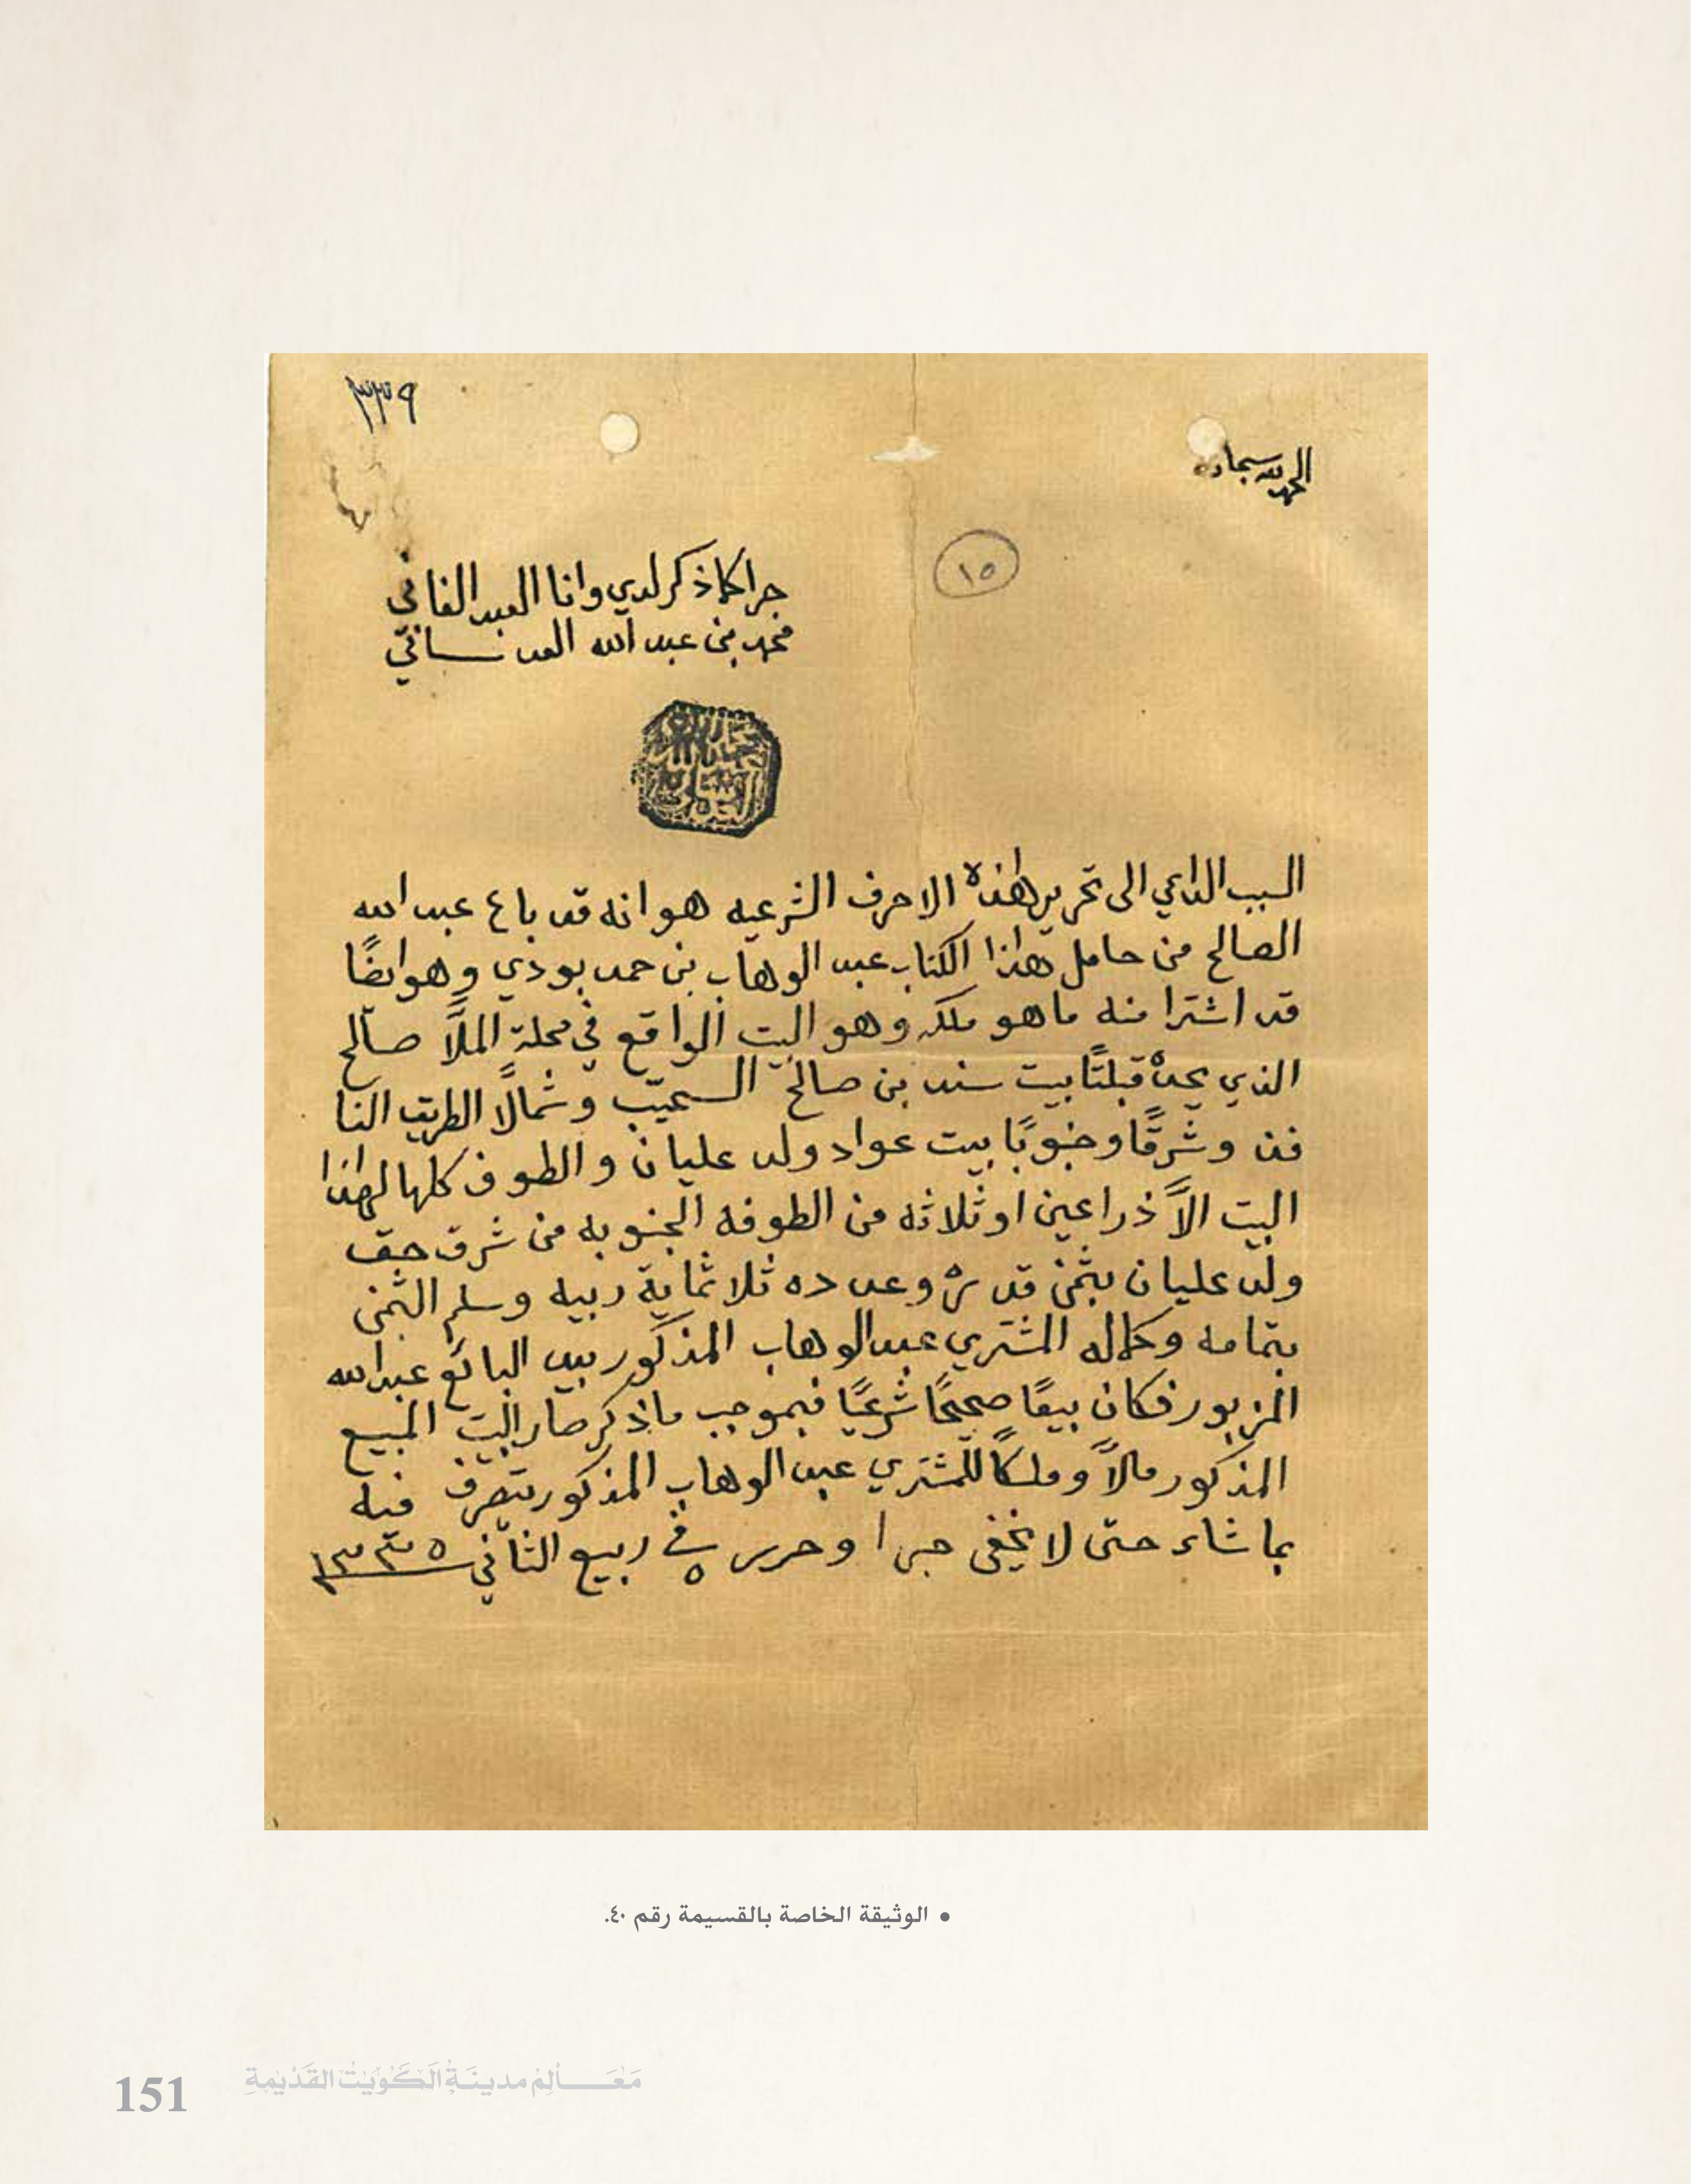 ٣٣٩
الحمد لله سبحانه
١٥
جرا كما ذكر لدي وانا العبد الفاني
محمد بن عبد الله العدساني
السبب الداعي الى تحرير هذه الاحرف الشرعيه هو انه قد باع عبد الله
الصالح من حامل هذا الكتاب عبد الوهاب بن حمد بودي وهو ايضًا
قد اشترا منه ما هو ملكه وهو البيت الواقع في محلة الملَّا صالح
الذي يحدّه قبلتًا بيت سند بن صالح السعيّب وشمالًا الطريق النا
فذ وشرقًا وجنوبًا بيت عواد ولد عليان والطوف كلها لهذا
البيت الاَّ ذراعين او ثلاثه من الطوفه الجنوبه من شرق حق
ولد عليان بثمن قدره وعدده ثلاثماية ربيه وسلم الثمن
بتمامه وكماله المشتري عبد الوهاب المذكور بيد البائع عبد الله
المزبور فكان بيعًا صحيحًا شرعيًا فبموجب ما ذكر صار البيت المبيع
المذكور مالاً وملكًا للمشتري عبد الوهاب المذكور يتصرف فيه
بما شاء حتى لا يخفى جرا وحرر في ٥ ربيع الثاني ١٣٣٥
• الوثيقة الخاصة بالقسيمة رقم ٤٠.
151 مَعَالِمُ مدينَةِ الكُوَيْتِ القَدْيمةِ